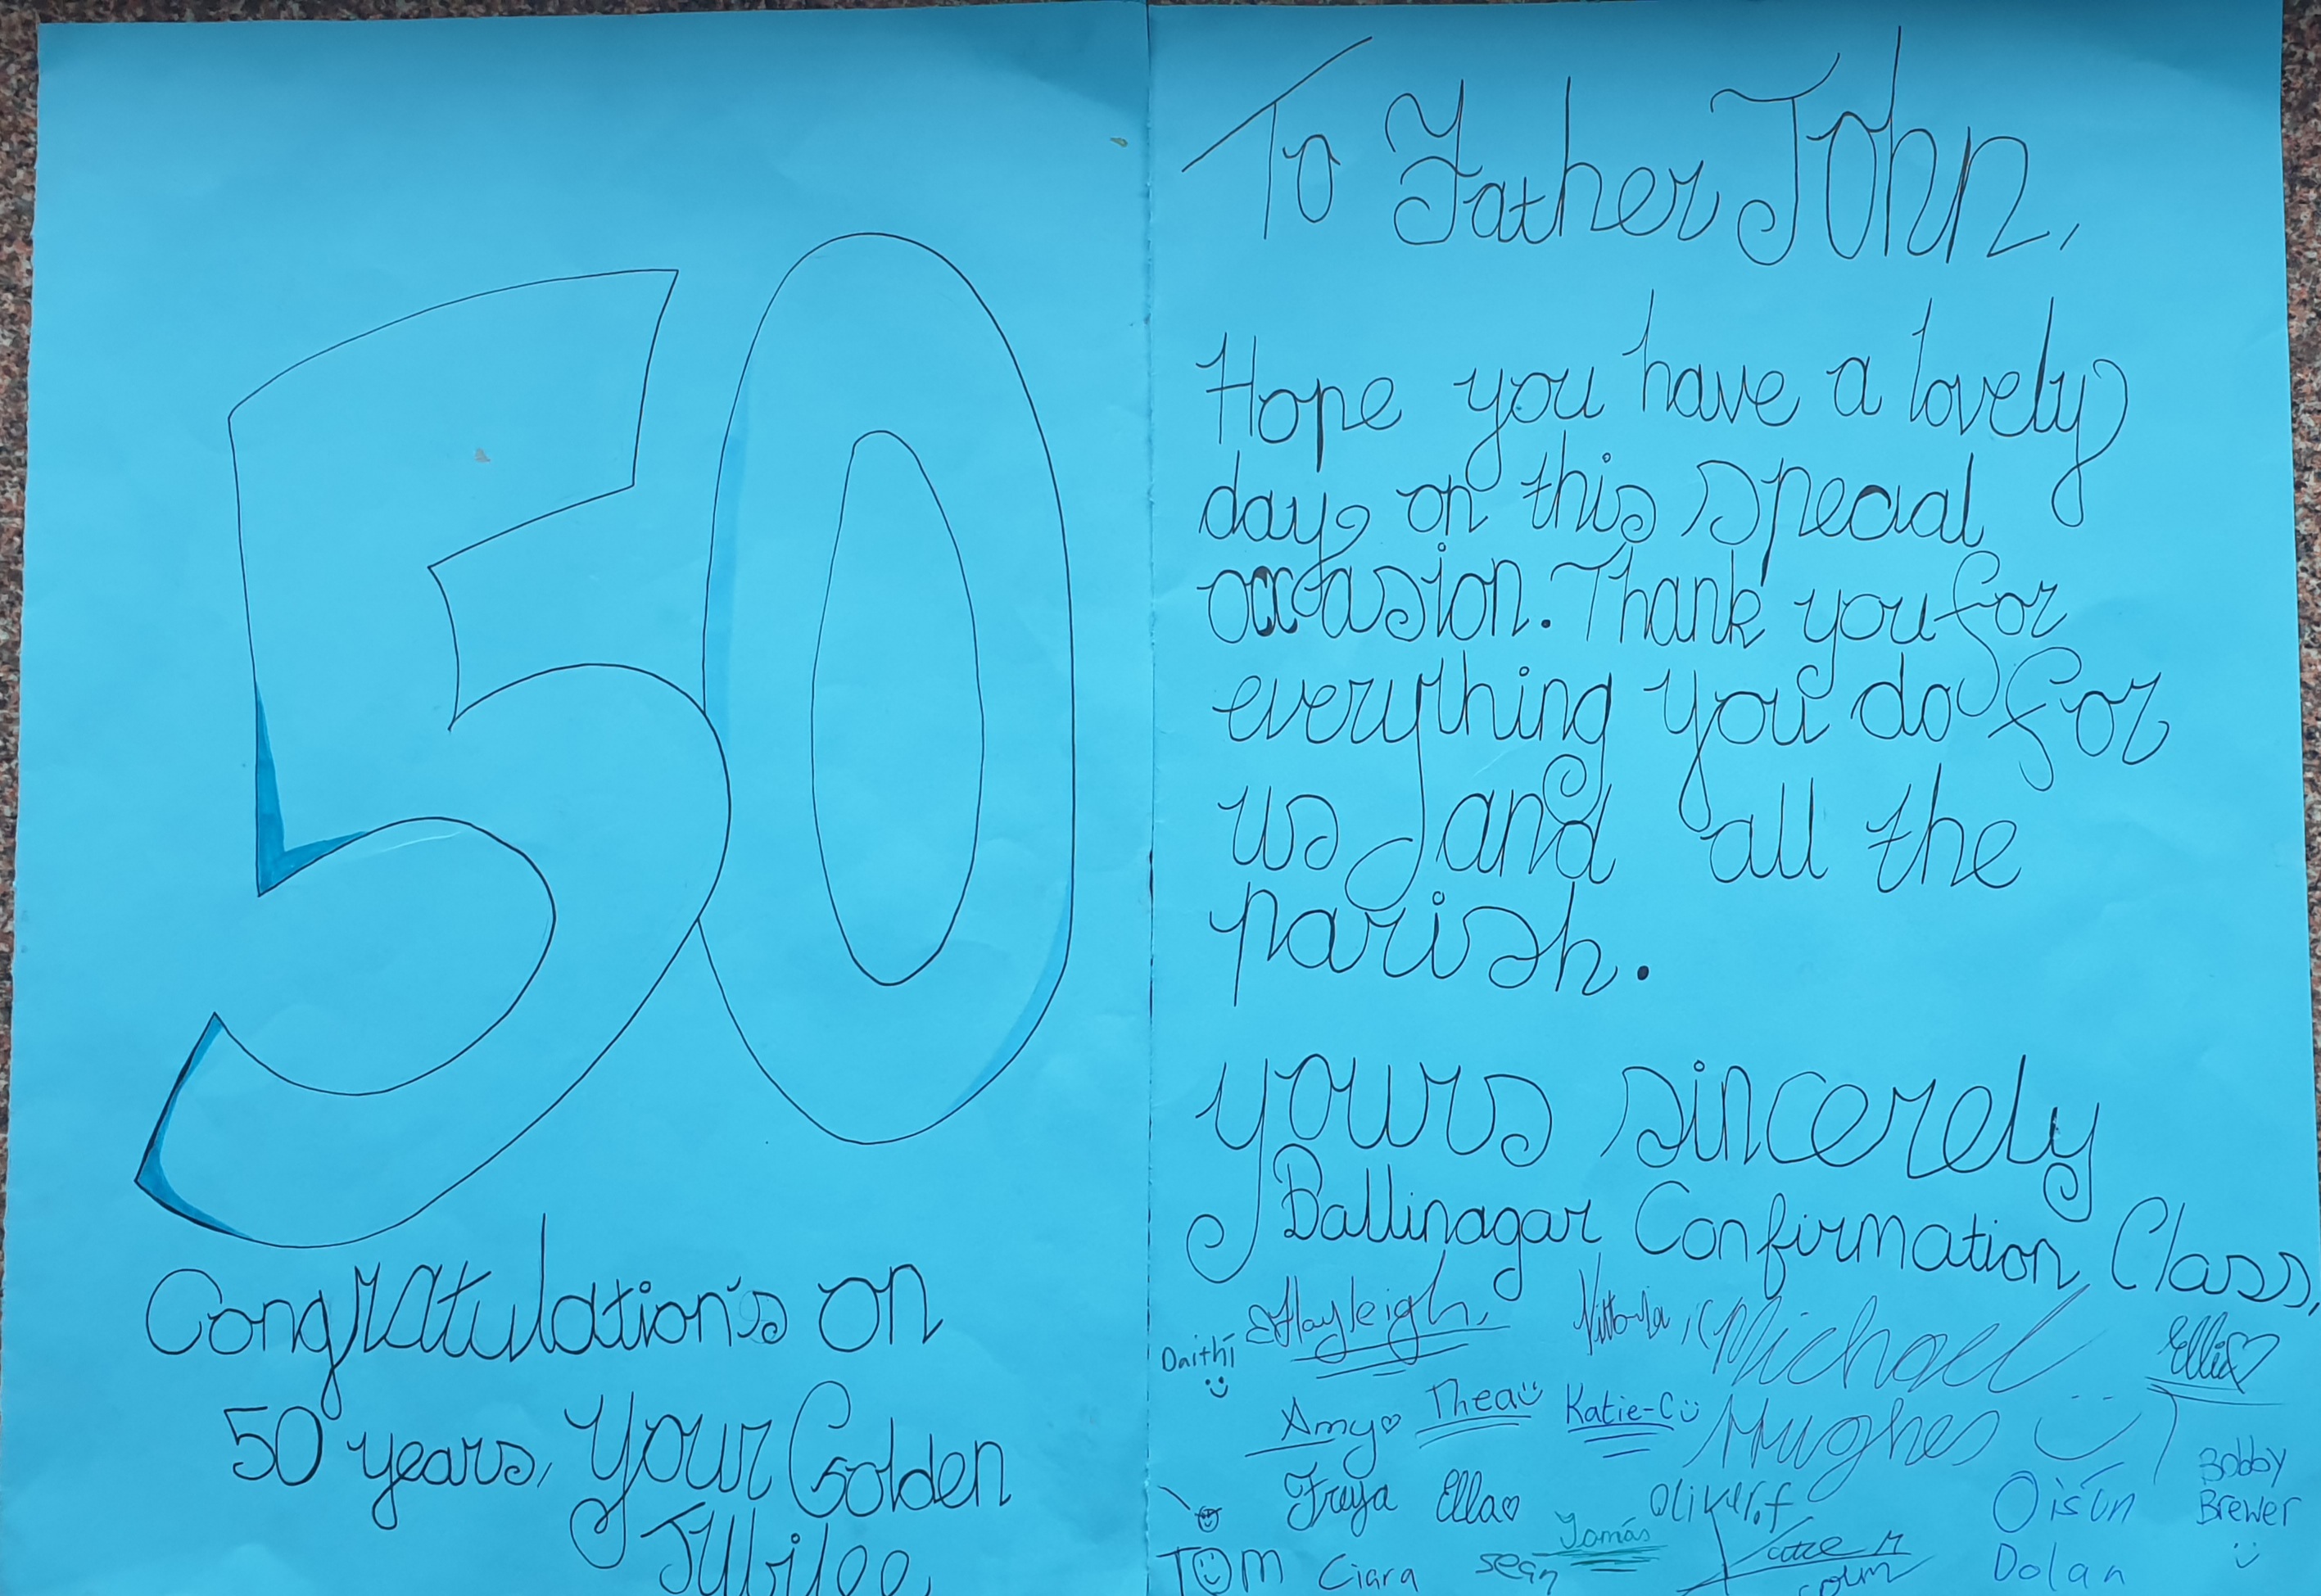 50
Congratulation's on
50 years, Your Golden
Jubilee,
To Father John,
Hope you have a lovely
day on this special
occasion. Thank you for
everything you do for
us and all the
parish.
yours sincerely
Ballinagar Confirmation Class,
Hayleigh, Vittoria Michael Ellie
Daithí
Amy Thea Katie-C Hughes
Freya Ella Oliver.f Oisín Bobby
Brewer
TOM Ciara Seán Tomás Katie M Dolan